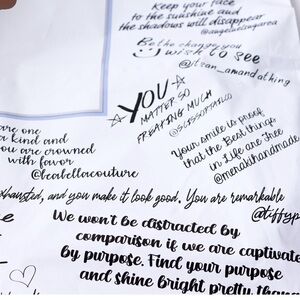 Keep your face
to the sunshine and
the shadows will disappear
Be the change you
wish to see
YOU
MATTER SO
FREAKING MUCH
Your smile is proof
that the Best things
in Life are free
@menakihandmade
are one
a kind and
ou are crowned
with favor
@bcabellacouture
exhausted, and you make it look good. You are remarkable
We won't be distracted by
comparison if we are captivate
by purpose. Find your purpose
and shine bright pretty